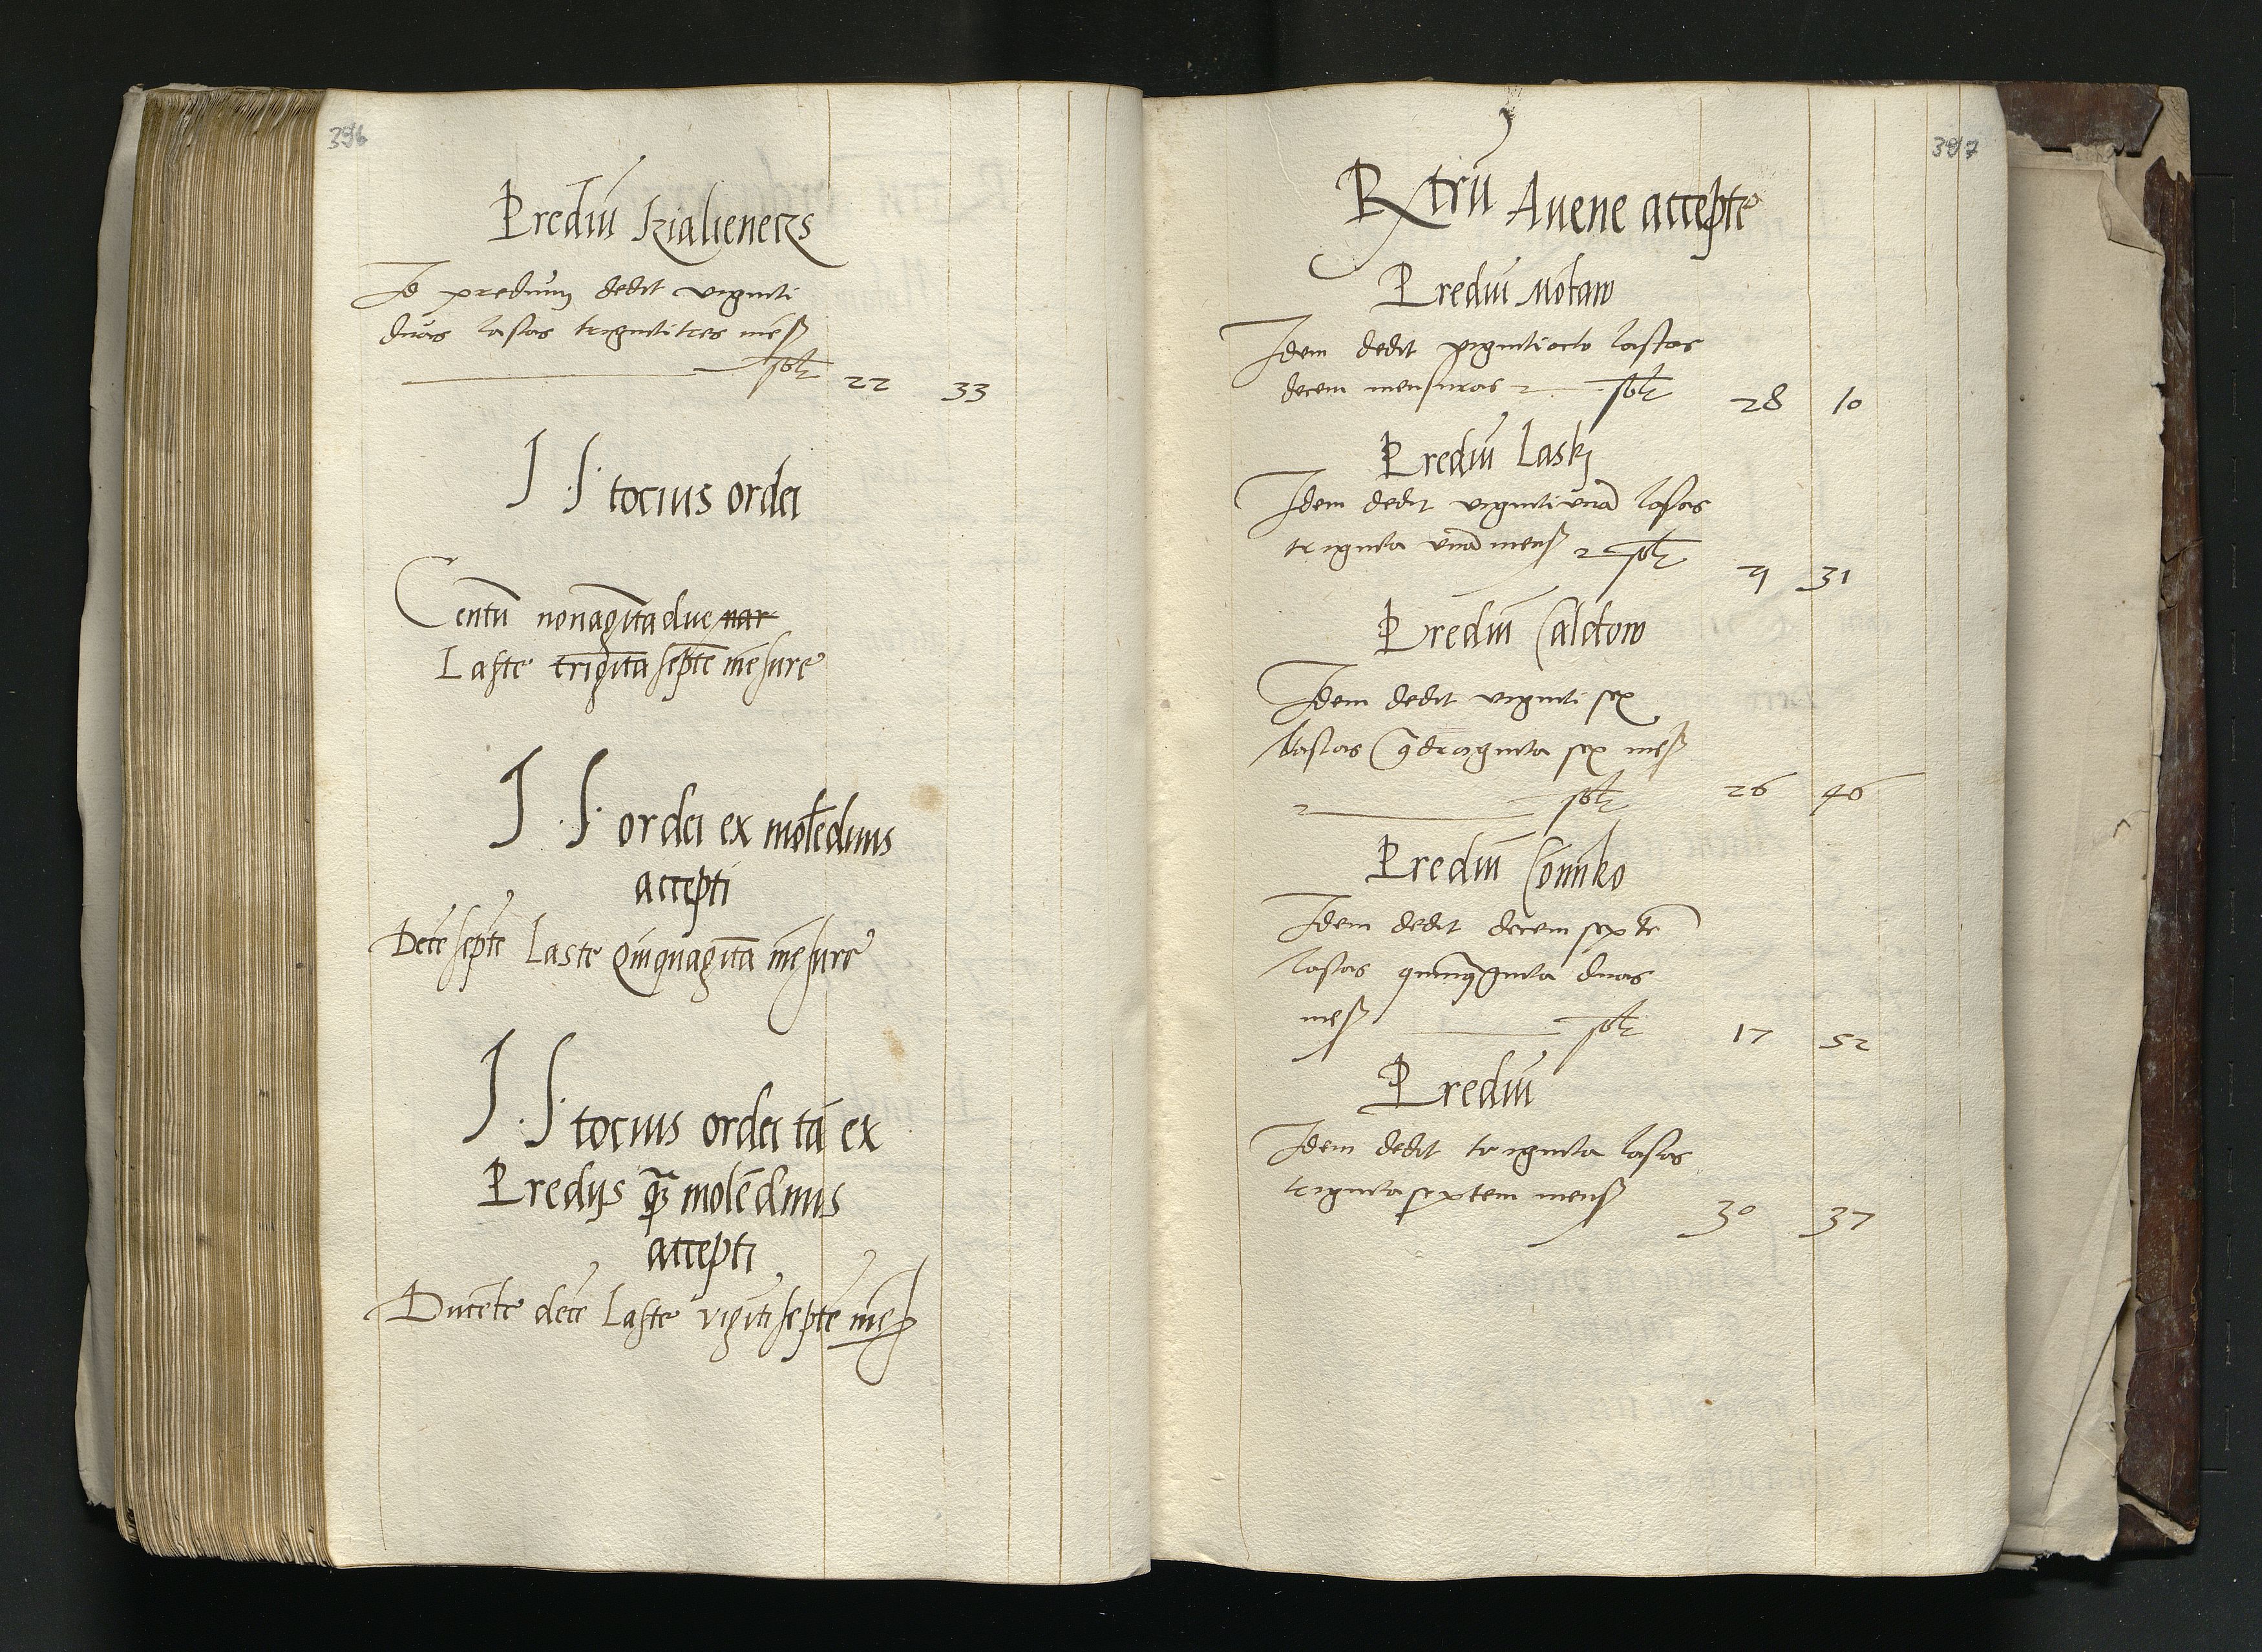 396
Prediū Kzialieneczs
Id predium dedit viginti
duas lastas trigintitres mēs
solt 22 33
I S tocius ordei
Centū nonagīta due nar
Laste trigīta septē mēsure
I S ordei ex molēdinis
accepti
Decē septē Laste Quīquagīta mēsure
I S tocius ordei tā ex
Predijs quā molēdinis
accepti
Ducēte decē Laste vigīti septē mēs
397
Rxtrū Auene accepte
Prediū Mōtaw
Idem dedit viginti octo lastas
decem mensuras solt 28 10
Prediū Laski
Idem dedit viginti vnā lastas
triginta vnā mens solt 21 31
Prediū Caldow
Idem dedit viginti sex
lastas qdraginta sex mēs
solt 26 46
Prediū
Idem dedit decem septē
lastas quinqginta duas
mēs solt 17 52
Prediū
Idem dedit triginta lastas
triginta septem mens 30 37